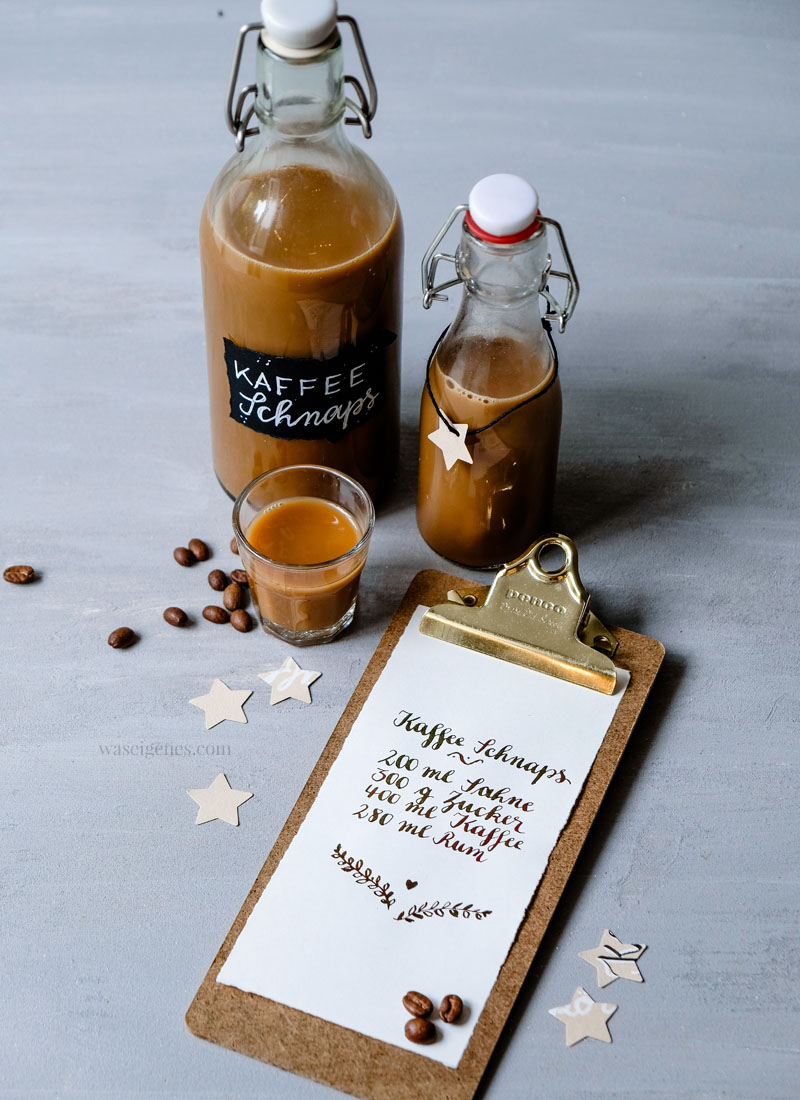 KAFFEE
Schnaps
penco
Kaffee Schnaps
200 ml Sahne
300 g Zucker
400 ml Kaffee
280 ml Rum
waseigenes.com